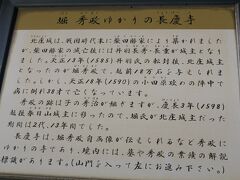 堀 秀政ゆかりの長慶寺
北庄城は、戦国時代末に柴田勝家により築かれました
が、柴田勝家の滅亡後には丹羽長秀・長重が城主となり
ました。天正13年(1585)丹羽氏の転封後、北庄城主
となったのが堀秀政で、越前18万石を与えられまし
た。しかし、天正18年(1590)の小田原攻めの陣中で
病に倒れ38才で亡くなっています。
秀政の跡は子の秀治が継ぎますが、慶長3年(1598)
越後春日山城主に移ったので、堀氏が北庄城主だった
期間は2代、13年でした。
長慶寺は、堀秀政自画像が伝えられるなど秀政に
ゆかりの寺であり、境内には、墓や秀政の業績の解説
標識があります。(山門を入って左にお進み下さい。)